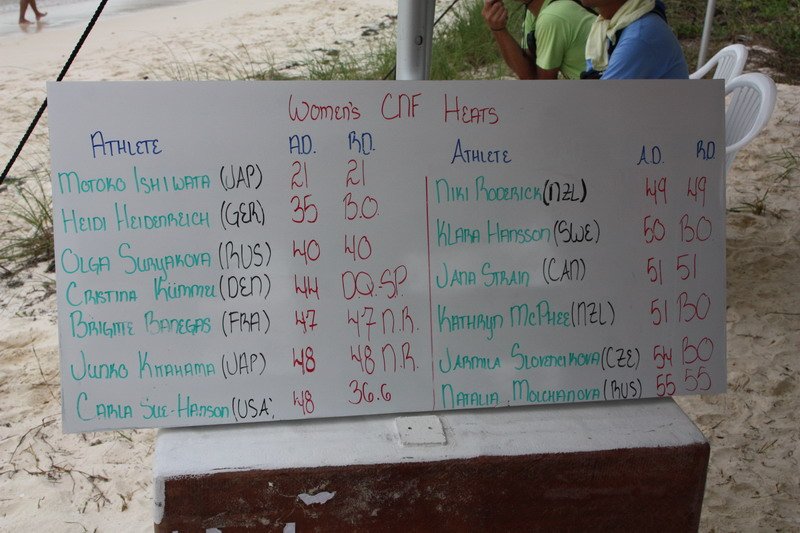 Women's CNF Heats
Athlete A.D. R.D.
Motoko Ishiwata (JAP) 21 21
Heidi Heidenreich (GER) 35 B.O.
Olga Suryakova (RUS) 40 40
Cristina Kümmel (DEN) 44 DQ.SP.
Brigite Banegas (FRA) 47 47 N.R.
Junko Kitahama (JAP) 48 48 N.R.
Carla Sue-Hanson (USA) 48 36.6
Athlete A.D. R.D.
Niki Roderick (NZL) 49 49
Klara Hansson (SWE) 50 BO.
Jana Strain (CAN) 51 51
Kathryn McPhee (NZL) 51 BO
Jarmila Slovencikova (CZE) 54 BO
Natalia Molchanova (RUS) 55 55